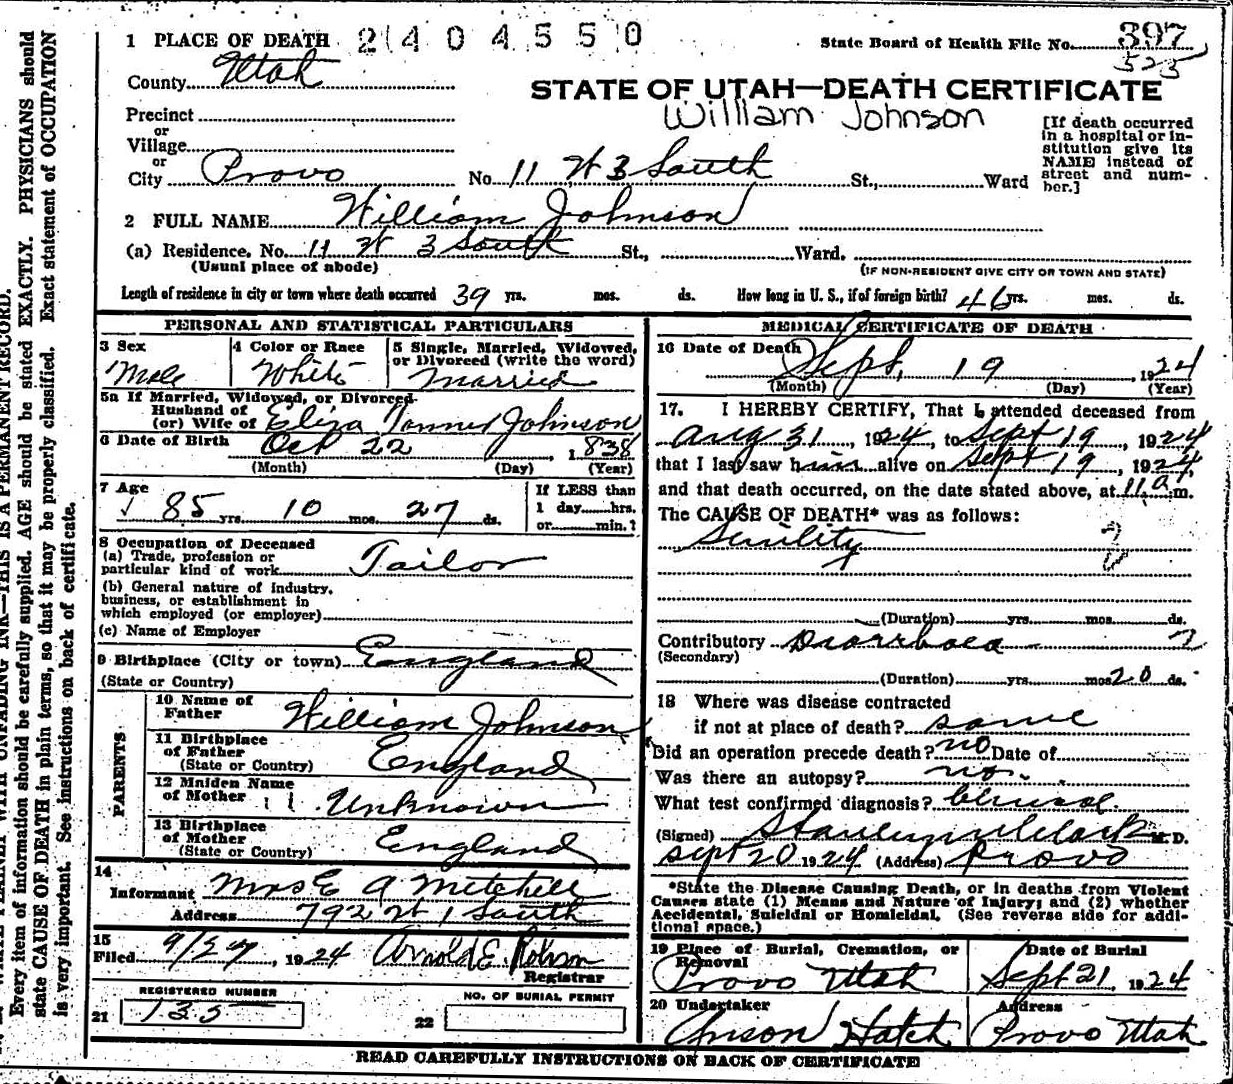 1 PLACE OF DEATH 2404550
State Board of Health File No. 397
County Utah
525
STATE OF UTAH—DEATH CERTIFICATE
William Johnson
Precinct
or
Village
or
City Provo No. 11 W 3 South St., Ward
[If death occurred
in a hospital or in-
stitution give its
NAME instead of
street and num-
ber.]
2 FULL NAME William Johnson
(a) Residence. No. 11 W 3 South St., Ward.
(Usual place of abode) (IF NON-RESIDENT GIVE CITY OR TOWN AND STATE)
Length of residence in city or town where death occurred 39 yrs. mos. ds. How long in U. S., if of foreign birth? 46 yrs. mos. ds.
PERSONAL AND STATISTICAL PARTICULARS
3 Sex 4 Color or Race 5 Single, Married, Widowed,
or Divorced (write the word)
Male White Married
5a If Married, Widowed, or Divorced
Husband of
(or) Wife of Eliza Johnson
6 Date of Birth Oct 22, 1838
(Month) (Day) (Year)
7 Age If LESS than
1 day hrs.
85 yrs. 10 mos. 27 ds. or min.?
8 Occupation of Deceased
(a) Trade, profession or
particular kind of work Tailor
(b) General nature of industry,
business, or establishment in
which employed (or employer)
(c) Name of Employer
9 Birthplace (City or town) England
(State or Country)
PARENTS
10 Name of
Father William Johnson
11 Birthplace
of Father
(State or Country) England
12 Maiden Name
of Mother Unknown
13 Birthplace
of Mother
(State or Country) England
14
Informant Mrs E A Mitchell
Address 792 W 1 South
15
Filed 9/27, 1924 Arnold E. Robison
Registrar
REGISTERED NUMBER
21 135
NO. OF BURIAL PERMIT
22
MEDICAL CERTIFICATE OF DEATH
16 Date of Death
Sept, 19, 1924
(Month) (Day) (Year)
17. I HEREBY CERTIFY, That I attended deceased from
Aug 31, 1924, to Sept 19, 1924
that I last saw him alive on Sept 19, 1924
and that death occurred, on the date stated above, at 11 a m.
The CAUSE OF DEATH* was as follows:
Senility
(Duration) yrs. mos. ds.
Contributory Diarrhoea
(Secondary)
(Duration) yrs. mos. 20 ds.
18 Where was disease contracted
if not at place of death? same
Did an operation precede death? no Date of
Was there an autopsy? no.
What test confirmed diagnosis? clinical
(Signed) Stanley M. Clark M. D.
Sept 20 1924 (Address) Provo
*State the Disease Causing Death, or in deaths from Violent
Causes state (1) Means and Nature of Injury; and (2) whether
Accidental, Suicidal or Homicidal. (See reverse side for addi-
tional space.)
19 Place of Burial, Cremation, or
Removal
Date of Burial
Provo Utah Sept 21, 1924
20 Undertaker Address
Anson Hatch Provo Utah
READ CAREFULLY INSTRUCTIONS ON BACK OF CERTIFICATE
WITH UNFADING INK—THIS IS A PERMANENT RECORD.
Every item of information should be carefully supplied. AGE should be stated EXACTLY. PHYSICIANS should
state CAUSE OF DEATH in plain terms, so that it may be properly classified. Exact statement of OCCUPATION
is very important. See instructions on back of certificate.